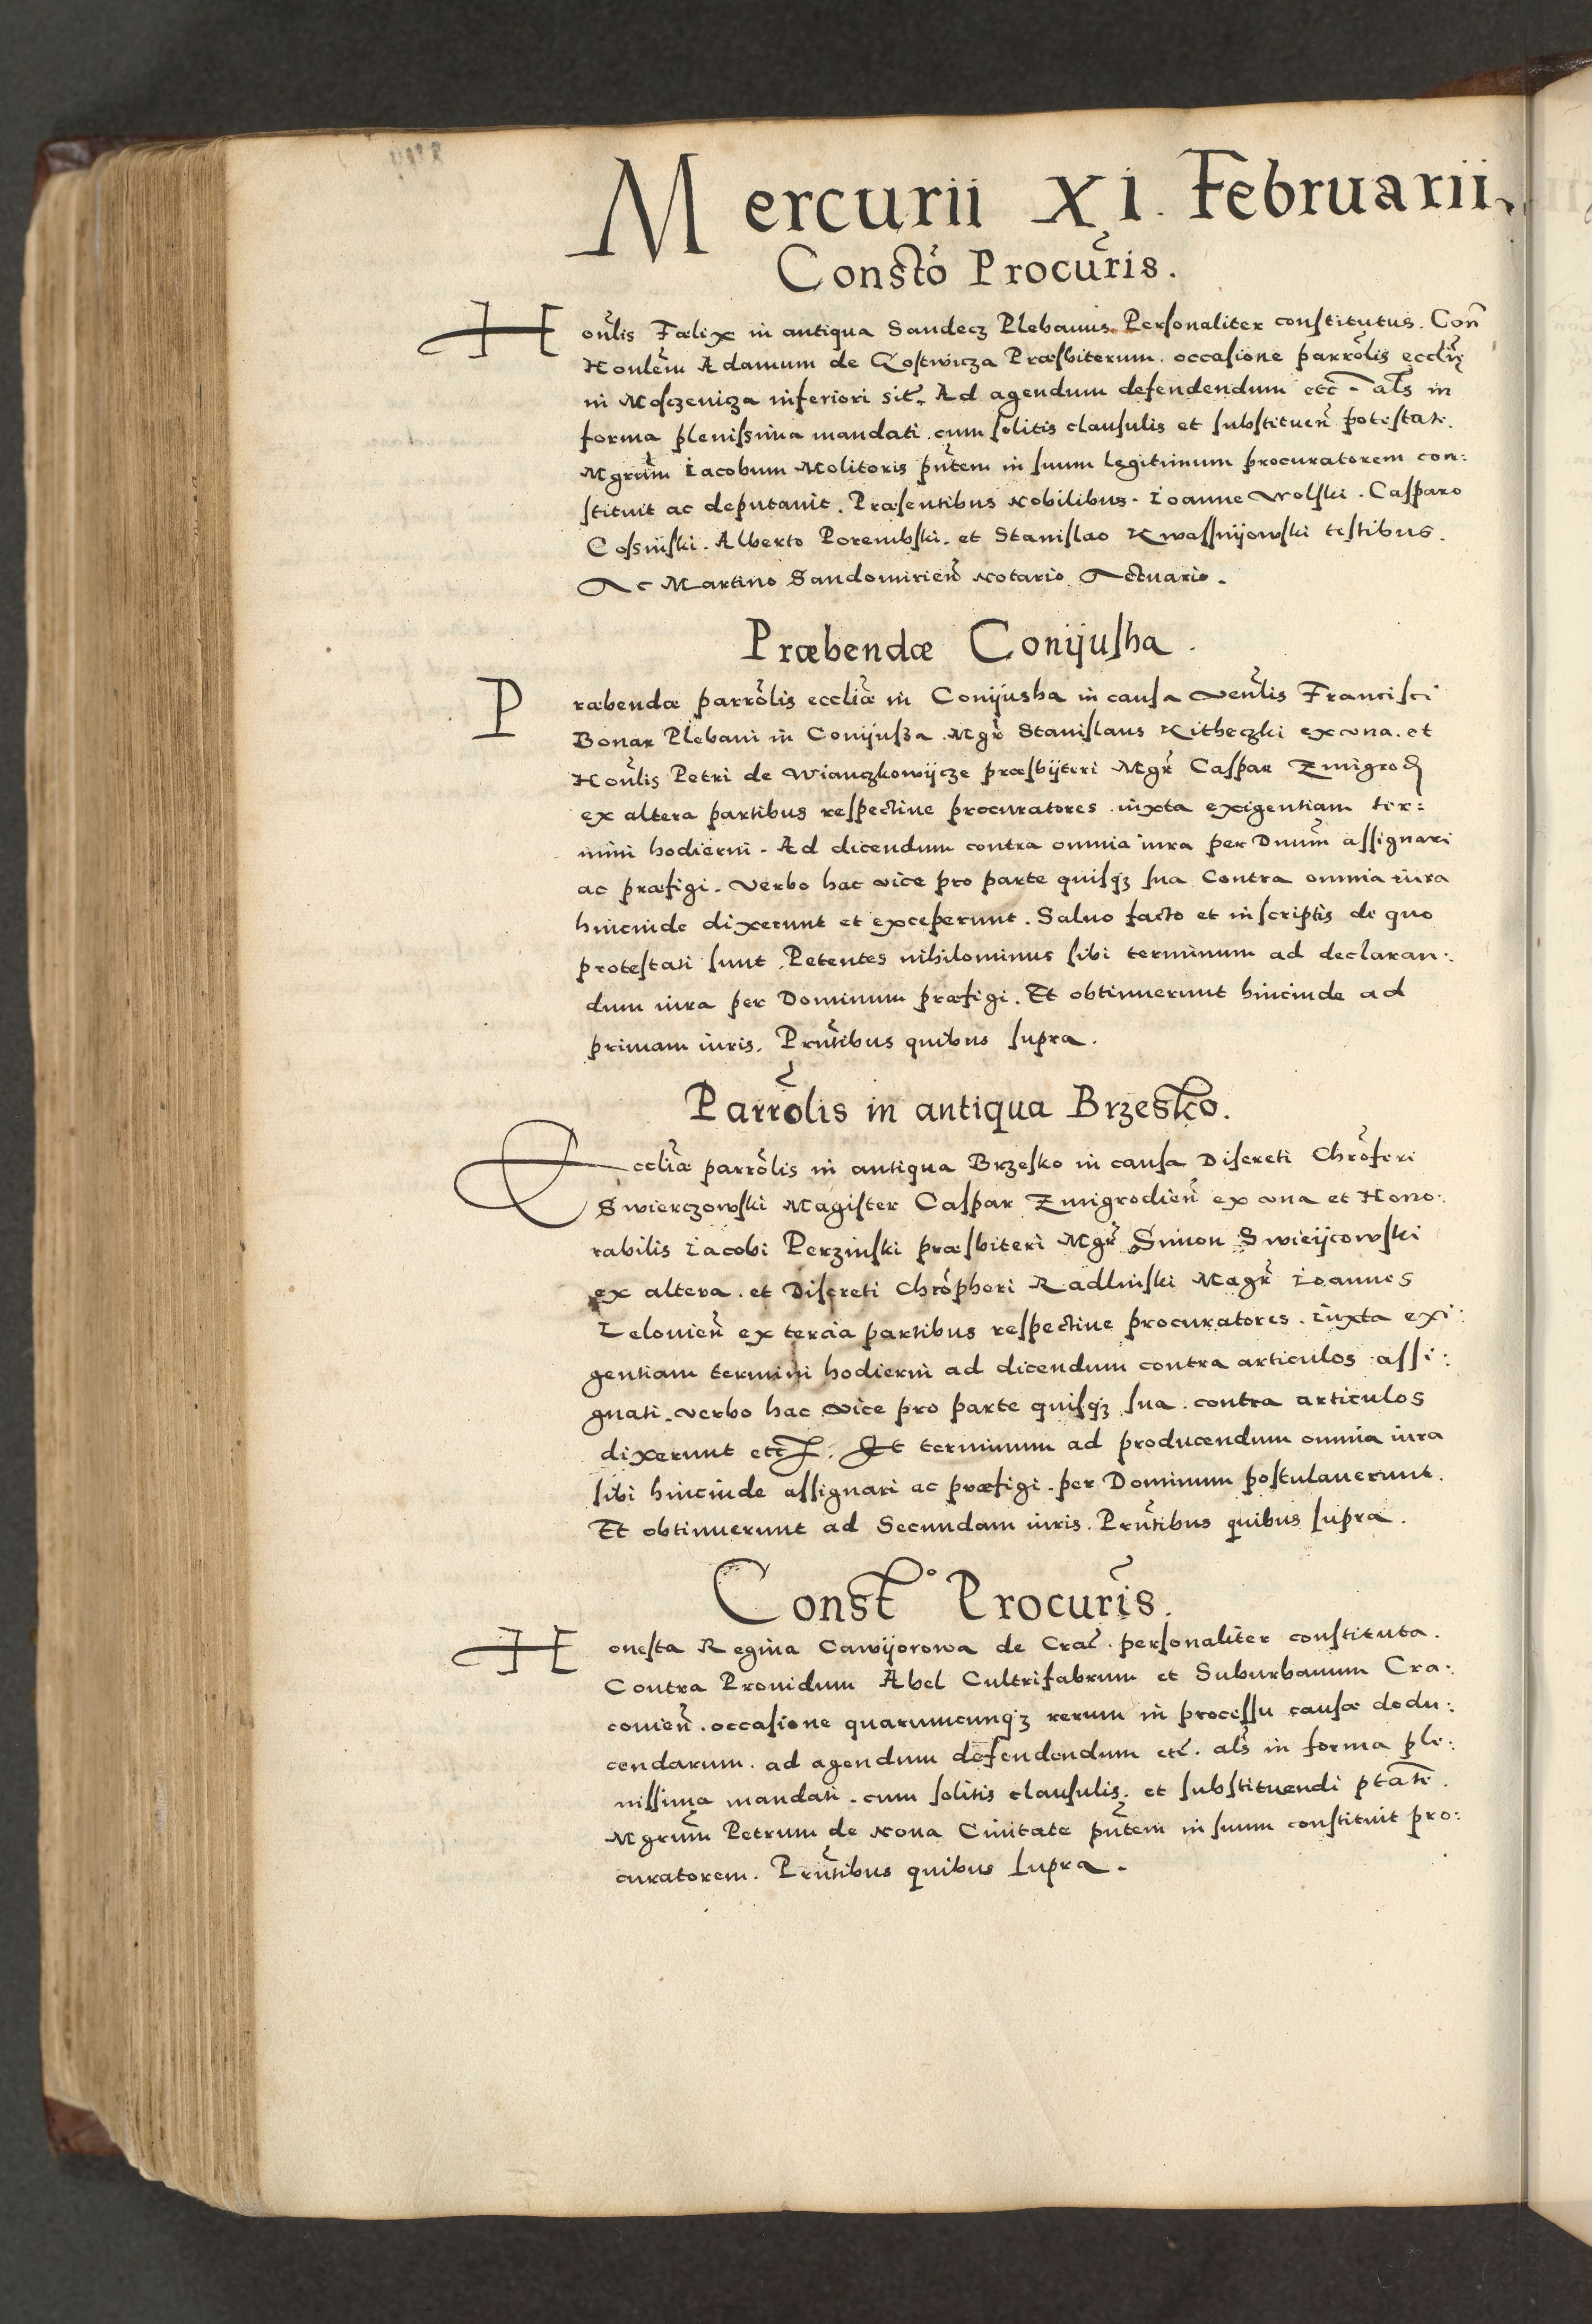 Mercurii XI. Februarii.
Consto Procuris.
Honlis Fælix in antiqua Sandecz Plebanus Personaliter constitutus. Con
Honlem Adamum de Gostwicza Præsbiterum. occasione parrolis eccliæ
in Mosczenicza inferiori sit. Ad agendum defendendum etc. als in
forma plenissima mandati. cum solitis clausulis et substituen potestate.
Mgrum Iacobum Molitoris pntem in suum legitimum procuratorem con:
stituit ac deputavit. Præsentibus Nobilibus. Ioanne Wolski. Casparo
Cosinski. Alberto Porembski. et Stanislao Kwassnijowski testibus.
Ac Martino Sandomirien Notario Actuario.
Præbendæ Conijusha.
Præbendæ parrolis eccliæ in Conijusha in causa Venlis Francisci
Bonar Plebani in Conijusza. Mgr Stanislaus Kitheczki ex una. et
Honlis Petri de Wianczkowijcze præsbijteri Mgr Caspar Zmigrod
ex altera partibus respective procuratores. iuxta exigentiam ter:
mini hodierni. Ad dicendum contra omnia iura per Dnum assignari
ac præfigi. Verbo hac vice pro parte quisqz sua Contra omnia iura
hincinde dixerunt et exceperunt. Salvo facto et in scriptis de quo
protestati sunt. Petentes nihilominus sibi terminum ad declaran:
dum iura per Dominum præfigi. Et obtinuerunt hincinde ad
primam iuris. Prntibus quibus supra.
Parrolis in antiqua Brzesko.
Eccliæ parrolis in antiqua Brzesko in causa Discreti Chrofori
Swierczowski Magister Caspar Zmigrodien ex una et Hono:
rabilis Iacobi Perzinski præsbiteri Mgr Simon Swieijcowski
ex altera. et Discreti Chrophori Radlinski Magr Ioannes
Lelovien ex tercia partibus respective procuratores. iuxta exi:
gentiam termini hodierni ad dicendum contra articulos assi:
gnati. verbo hac vice pro parte quisqz sua. contra articulos
dixerunt etc. Et terminum ad producendum omnia iura
sibi hincinde assignari ac præfigi. per Dominum postulaverunt.
Et obtinuerunt ad Secundam iuris. Prntibus quibus supra.
Consto Procuris.
Honesta Regina Cawijorowa de Crac. personaliter constituta.
Contra Providum Abel Cultrifabrum et Suburbanum Cra:
covien. occasione quarumcunqz rerum in processu causæ dedu:
cendarum. ad agendum defendendum etc. als in forma ple:
nissima mandati. cum solitis clausulis. et substituendi ptate.
Mgrum Petrum de Nova Civitate pntem in suum constituit pro:
curatorem. Prntibus quibus supra.